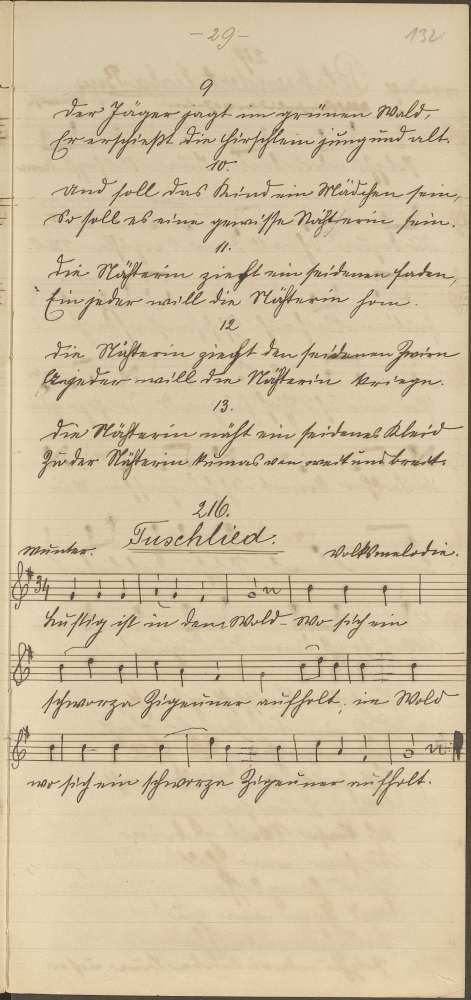 -29-
132
9
Der Jäger jagt im grünen Wald,
Er erschießt die Hirschlein jung und alt.
10.
Und soll das Kind ein Mädchen sein,
So soll es eine gewisse Nähterin sein.
11.
Die Nähterin zieht ein seidenen Faden,
Ein jeder will die Nähterin hom.
12
Die Nähterin zieht den seidenen Zwirn
A jeder will die Nähterin kriegn.
13.
Die Nähterin näht ein seidenes Kleid
Zu der Nähterin kumas von weit und breit.
216.
Tuschlied.
Munter.
Volksmelodie.
3/4
Lustig ist in dem Wold - wo sich ein
schworza Zigeuner aufholt; im Wold
wo sich ein schworza Zigeuner aufholt.